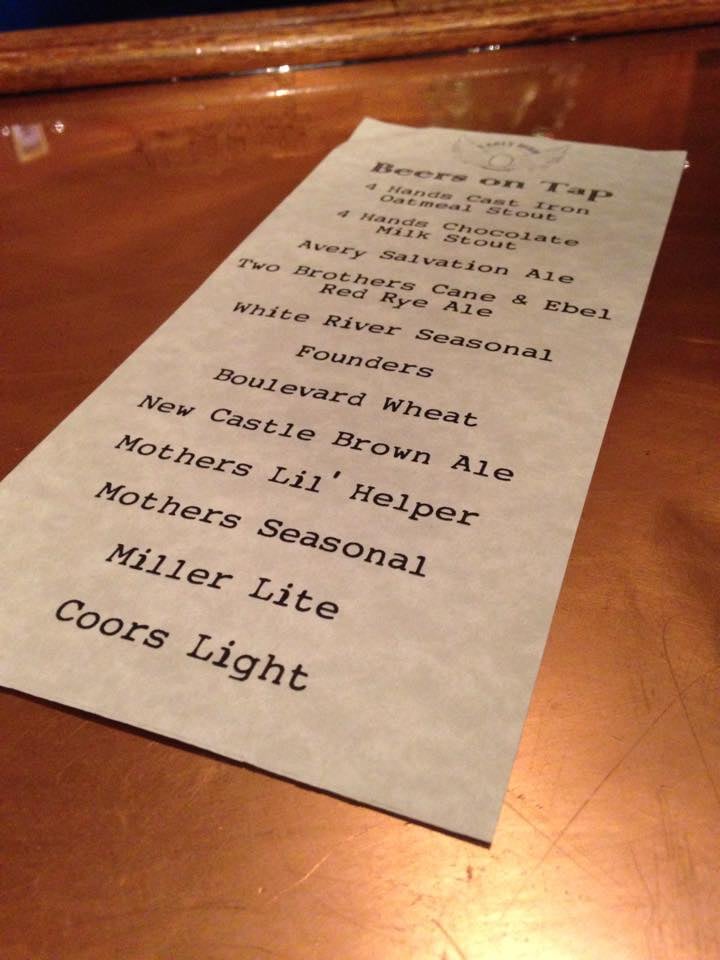 Beers on Tap
4 Hands Cast Iron
Oatmeal Stout
4 Hands Chocolate
Milk Stout
Avery Salvation Ale
Two Brothers Cane & Ebel
Red Rye Ale
White River Seasonal
Founders
Boulevard Wheat
New Castle Brown Ale
Mothers Lil' Helper
Mothers Seasonal
Miller Lite
Coors Light